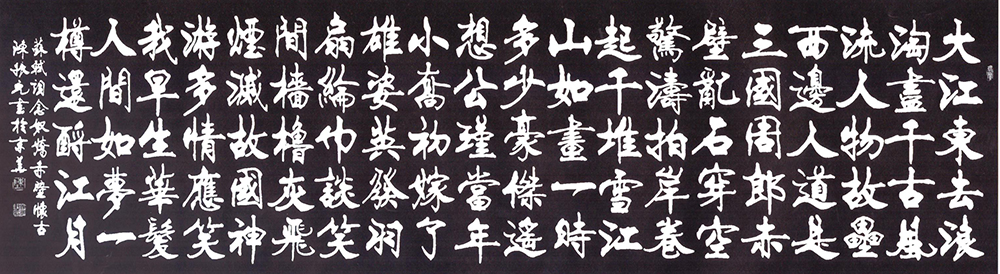 大江東去浪
淘盡千古風
流人物故壘
西邊人道是
三國周郎赤
壁亂石穿空
驚濤拍岸卷
起千堆雪江
山如畫一時
多少豪傑遙
想公瑾當年
小喬初嫁了
雄姿英發羽
扇綸巾談笑
間檣櫓灰飛
煙滅故國神
游多情應笑
我早生華髮
人間如夢一
樽還酹江月
蘇軾詞念奴嬌赤壁懷古
陳元書於京